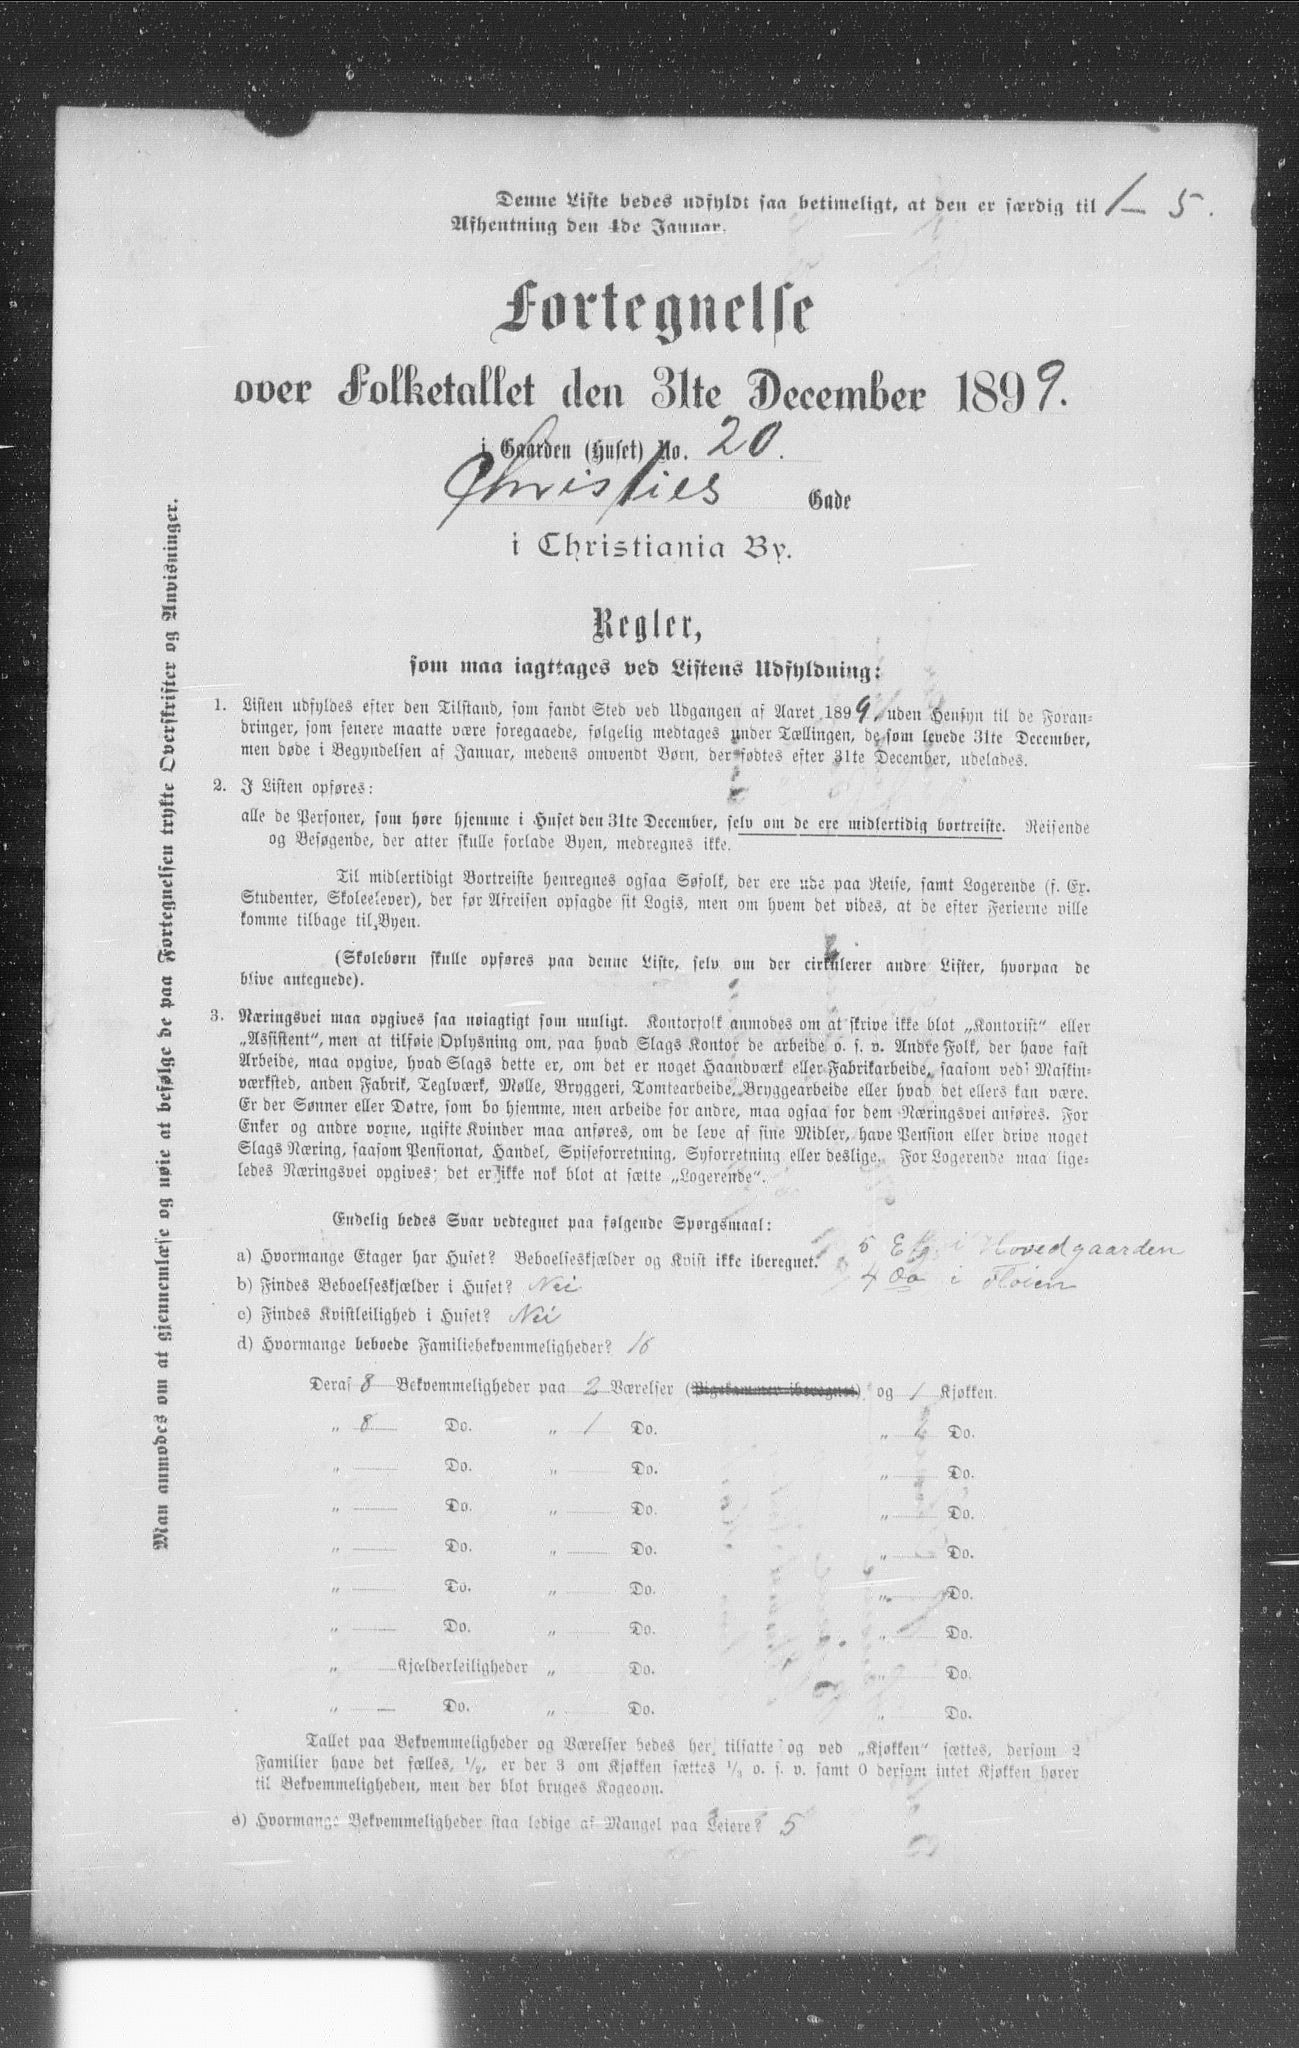 Denne Liste bedes udfyldt saa betimeligt, at den er færdig til 1 — 5.
Afhentning den 4de Januar.
Fortegnelse
over Folketallet den 31te December 1899.
i Gaarden (Huset) No. 20.
Christies Gade
i Christiania By.
Regler,
som maa iagttages ved Listens Udfyldning:
1. Listen udfyldes efter den Tilstand, som fandt Sted ved Udgangen af Aaret 1899, uden Hensyn til de Foran-
dringer, som senere maatte være foregaaede, følgelig medtages under Tællingen, de som levede 31te December,
men døde i Begyndelsen af Januar, medens omvendt Børn, der fødtes efter 31te December, udelades.
2. I Listen opføres:
alle de Personer, som høre hjemme i Huset den 31te December, selv om de ere midlertidig bortreiste. Reisende
og Besøgende, der atter skulle forlade Byen, medregnes ikke.
Til midlertidigt Bortreiste henregnes ogsaa Søfolk, der ere ude paa Reise, samt Logerende (f. Ex.
Studenter, Skoleelever), der før Afreisen opsagde sit Logis, men om hvem det vides, at de efter Ferierne ville
komme tilbage til Byen.
(Skolebørn skulle opføres paa denne Liste, selv om der cirkulerer andre Lister, hvorpaa de
blive antegnede).
3. Næringsvei maa opgives saa nøiagtigt som muligt. Kontorfolk anmodes om at skrive ikke blot „Kontorist“ eller
„Assistent“, men at tilføie Oplysning om, paa hvad Slags Kontor de arbeide o. s. v. Andre Folk, der have fast
Arbeide, maa opgive, hvad Slags dette er, om det er noget Haandværk eller Fabrikarbeide, saasom ved Maskin-
værksted, anden Fabrik, Teglværk, Mølle, Bryggeri, Tomtearbeide, Bryggearbeide eller hvad det ellers kan være.
Er der Sønner eller Døtre, som bo hjemme, men arbeide for andre, maa ogsaa for dem Næringsvei anføres. For
Enker og andre voxne, ugifte Kvinder maa anføres, om de leve af sine Midler, have Pension eller drive noget
Slags Næring, saasom Pensionat, Handel, Spiseforretning, Syforretning eller deslige. For Logerende maa lige-
ledes Næringsvei opgives; det er ikke nok blot at sætte „Logerende“.
Endelig bedes Svar vedtegnet paa følgende Spørgsmaal:
a) Hvormange Etager har Huset? Beboelseskjælder og Kvist ikke iberegnet. 5 Etg. i Hovedgaarden
4 Do i Fløien
b) Findes Beboelseskjælder i Huset? Nei
c) Findes Kvistleilighed i Huset? Nei
d) Hvormange beboede Familiebekvemmeligheder? 16
Deraf 8 Bekvemmeligheder paa 2 Værelser (Pigekammer iberegnet) og 1 Kjøkken.
„ 8 Do. „ 1 Do. „ 1 Do.
„ — Do. „ — Do. „ — Do.
„ — Do. „ — Do. „ — Do.
„ — Do. „ — Do. „ — Do.
„ — Do. „ — Do. „ — Do.
„ — Do. „ — Do. „ — Do.
„ — Kjælderleiligheder „ — Do. „ — Do.
„ — Do. „ — Do. „ — Do.
Tallet paa Bekvemmeligheder og Værelser bedes her tilsatte og ved „Kjøkken“ sættes, dersom 2
Familier have det fælles, 1/2, er der 3 om Kjøkken sættes 1/3 o. s. v. samt 0 dersom intet Kjøkken hører
til Bekvemmeligheden, men der blot bruges Kogeovn.
e) Hvormange Bekvemmeligheder staa ledige af Mangel paa Leiere? 5
Man anmodes om at gjennemlæse og nøie at befølge de paa Fortegnelsen trykte Overskrifter og Anvisninger.